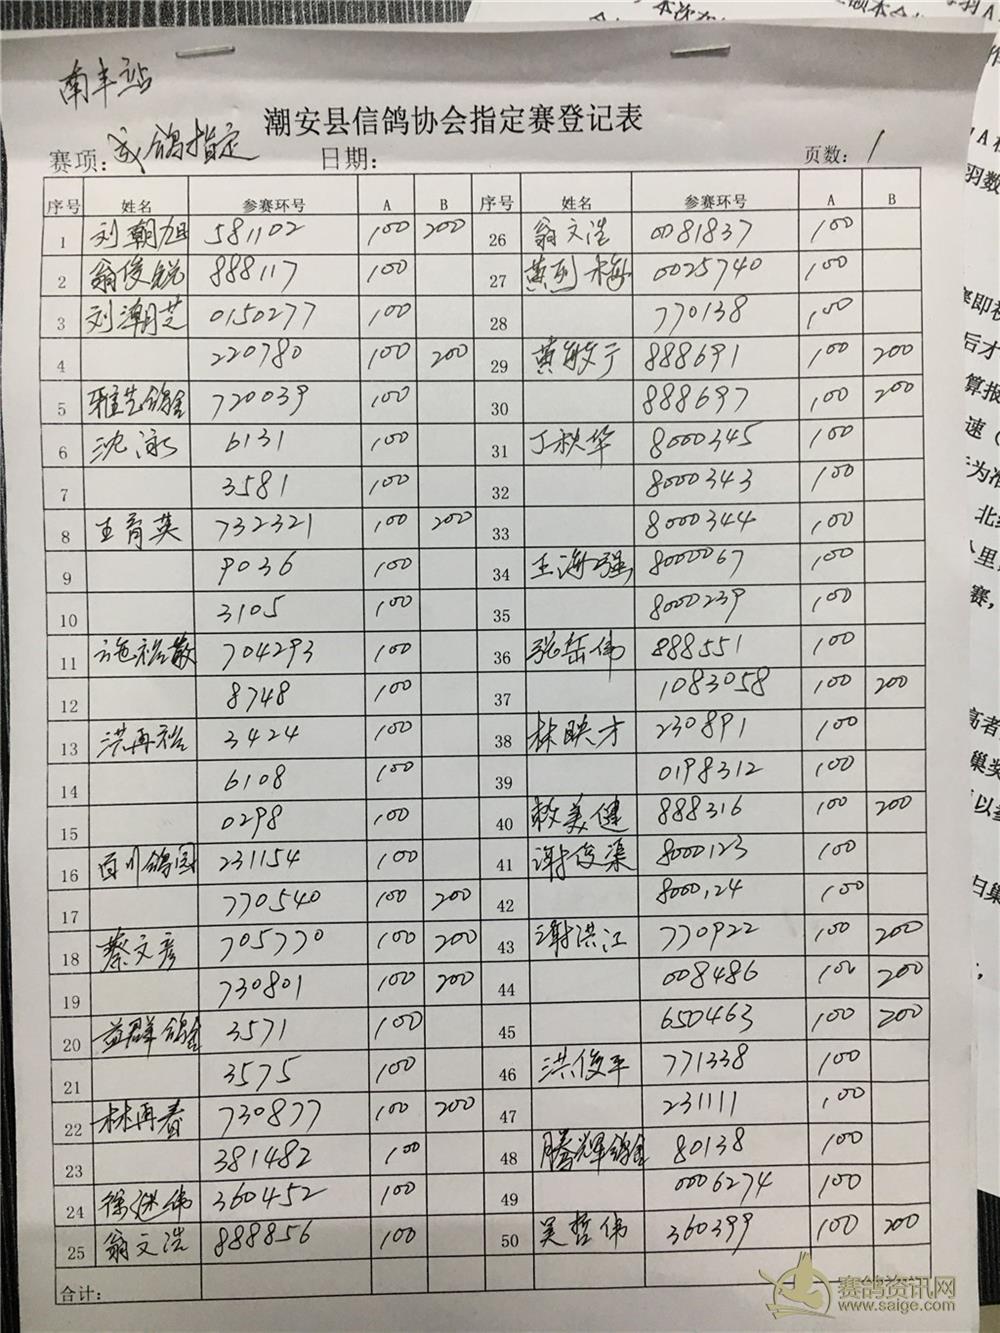 南丰站
潮安县信鸽协会指定赛登记表
赛项: 成鸽指定 日期: 页数: 1
序号 姓名 参赛环号 A B 序号 姓名 参赛环号 A B
1 刘朝旭 581102 100 200 26 翁文浩 0081837 100
2 翁俊锐 888117 100 27 黄列梅 0025740 100
3 刘潮芝 0150277 100 28 770138 100
4 220780 100 200 29 黄敏于 888691 100 200
5 雅芝鸽舍 720039 100 30 888697 100 200
6 沈泳 6131 100 31 丁秋华 8000345 100
7 3581 100 32 8000343 100
8 王育英 732321 100 200 33 8000344 100
9 9036 100 34 王海强 8000067 100
10 3105 100 35 8000239 100
11 施裕散 704293 100 36 张岳伟 888551 100
12 8748 100 37 1083058 100 200
13 洪再裕 3424 100 38 林映才 230891 100
14 6108 100 39 0198312 100
15 0298 100 40 美健 888316 100 200
16 百川鸽园 231154 100 41 谢俊渠 8000123 100
17 770540 100 200 42 8000124 100
18 蔡文彦 705770 100 200 43 谢洪江 770922 100 200
19 730801 100 200 44 008486 100 200
20 益群鸽舍 3571 100 45 650463 100 200
21 3575 100 46 洪俊平 771338 100
22 林再春 730877 100 200 47 231111 100
23 381482 100 48 腾辉鸽舍 80138 100
24 徐继伟 360452 100 49 0006274 100
25 翁文浩 888856 100 50 吴哲伟 360399 100 200
合计:
赛鸽资讯网
www.saige.com